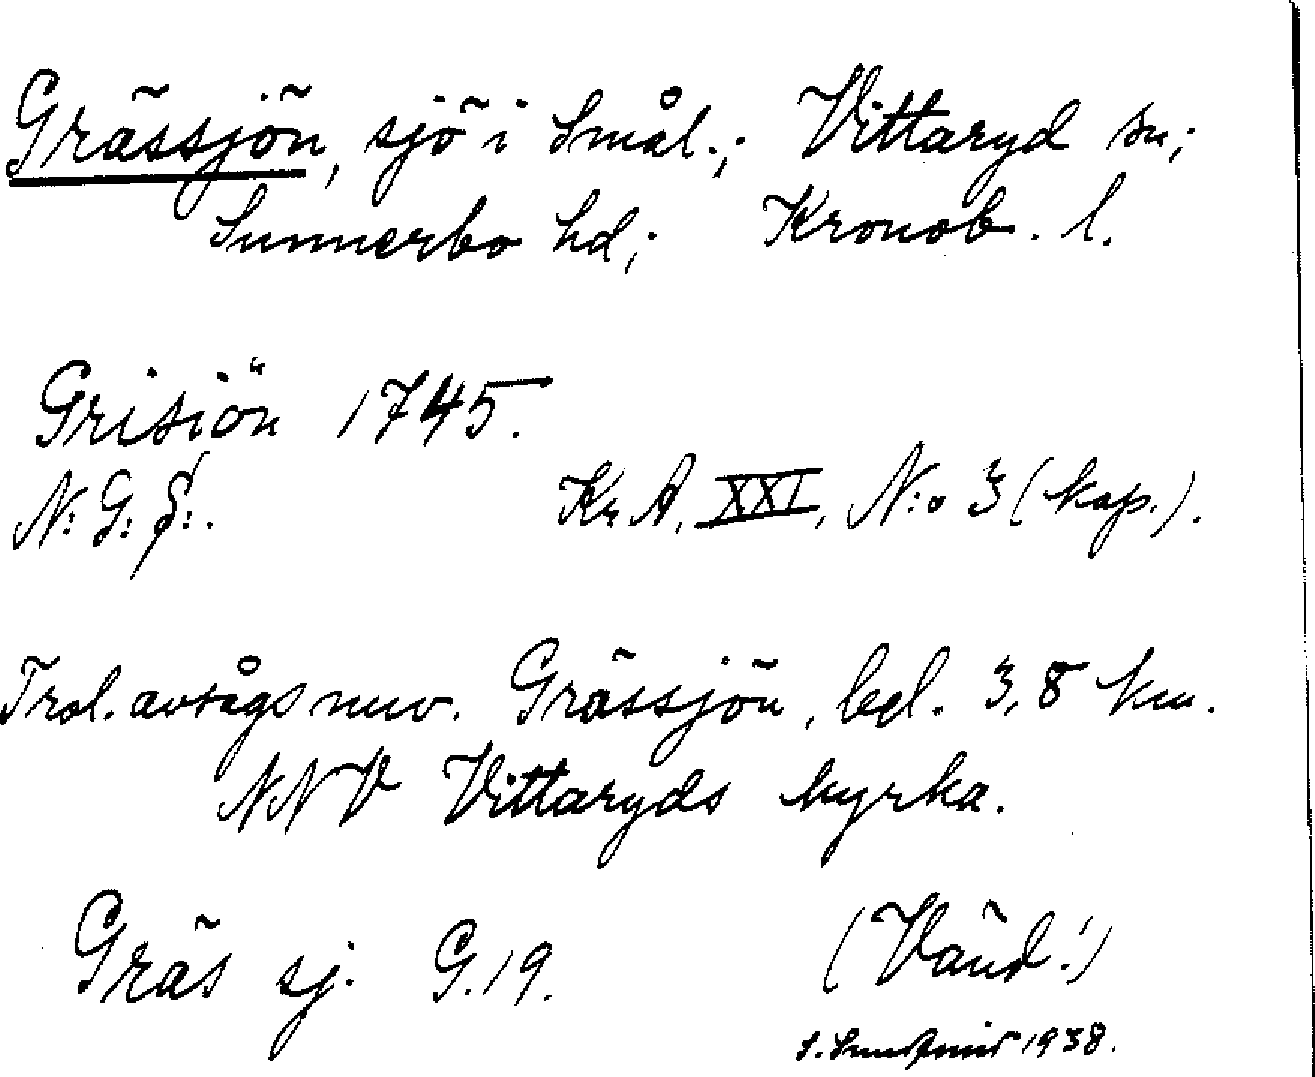 Grässjön, sjö i Smål.; Vittaryd sn;
Sunnerbo hd; Kronob. l.
Grisiön 1745.
N: G: f:. Kr A, XXI, N:o 3 (kap.).
Trol. avságs nuv. Grässjön, bel. 3,8 km.
NNV Vittaryds kyrka.
Gräs sj. G.19.
(Vänd!)
S. 1938.